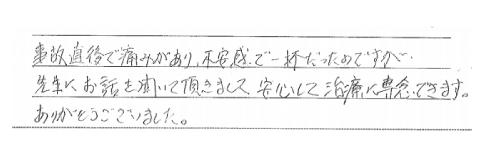 事故直後で痛みがあり、不安感で一杯だったのですが、
先生にお話を聞いて頂きまして、安心して治療に専念できます。
ありがとうございました。